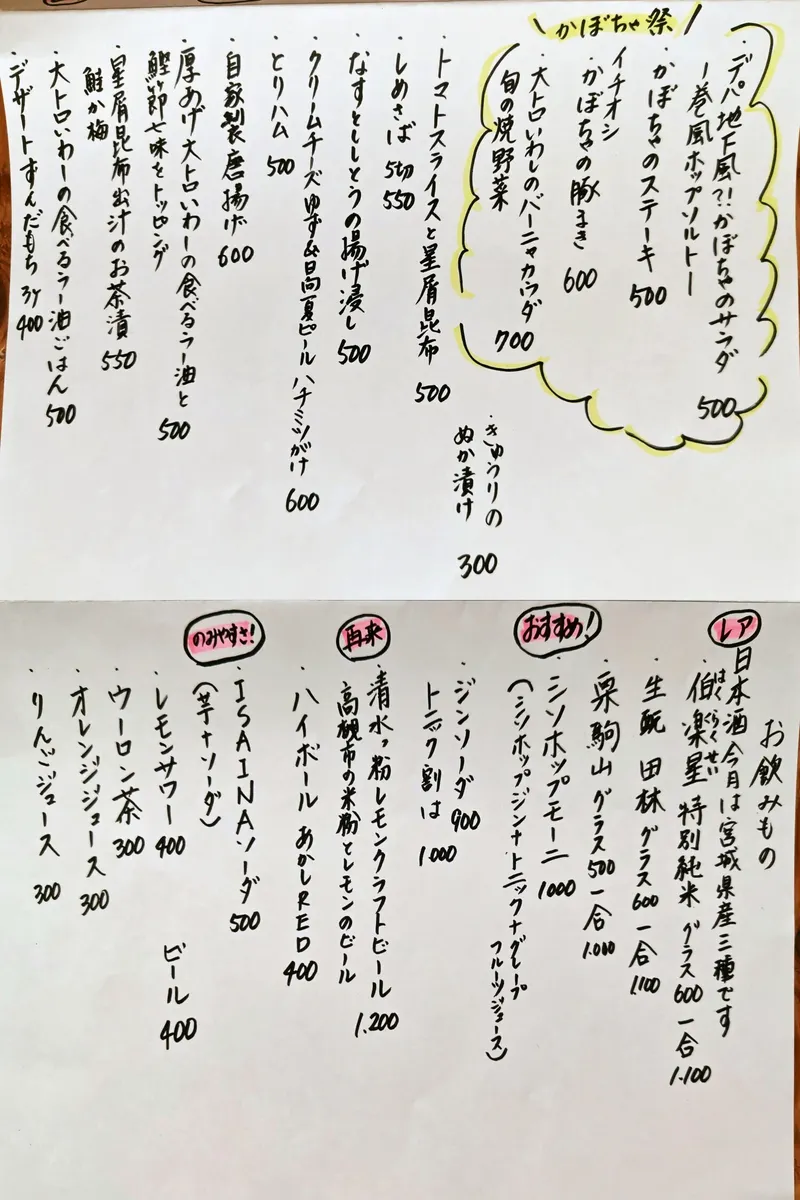 かぼちゃ祭
・デパ地下風?!かぼちゃのサラダ
ー巻風ホップソルトー 500
・かぼちゃのステーキ 500
イチオシ
・かぼちゃの豚まき 600
・大トロいわしのバーニャカウダ
旬の焼野菜 700
・きゅうりの
ぬか漬け 300
・トマトスライスと星屑昆布 500
・しめさば 5切 550
・なすとししとうの揚げ浸し 500
・クリームチーズゆず&日向夏ピール ハチミツがけ 600
・とりハム 500
・自家製唐揚げ 600
・厚あげ大トロいわしの食べるラー油と
鰹節七味をトッピング 500
・星屑昆布出汁のお茶漬
鮭か梅 550
・大トロいわしの食べるラー油ごはん 500
・デザート ずんだもち 3ヶ 400
お飲みもの
レア
日本酒 今月は宮城県産三種です
・伯楽星 特別純米 グラス600 一合1.100
はくらくせい
・生酛 田林 グラス600 一合1.100
・栗駒山 グラス500 一合1.000
おすすめ!
・シソホップモーニ 1000
(シソホップジン+トニック+グレープ
フルーツジュース)
・ジンソーダ 900
トニック割は 1000
再来
・清水っ粉レモンクラフトビール 1.200
高槻市の米粉とレモンのビール
・ハイボール あかしRED 400
のみやすさ!
・ISAINAソーダ 500
(芋+ソーダ)
・レモンサワー 400
ビール 400
・ウーロン茶 300
・オレンジジュース 300
・りんごジュース 300